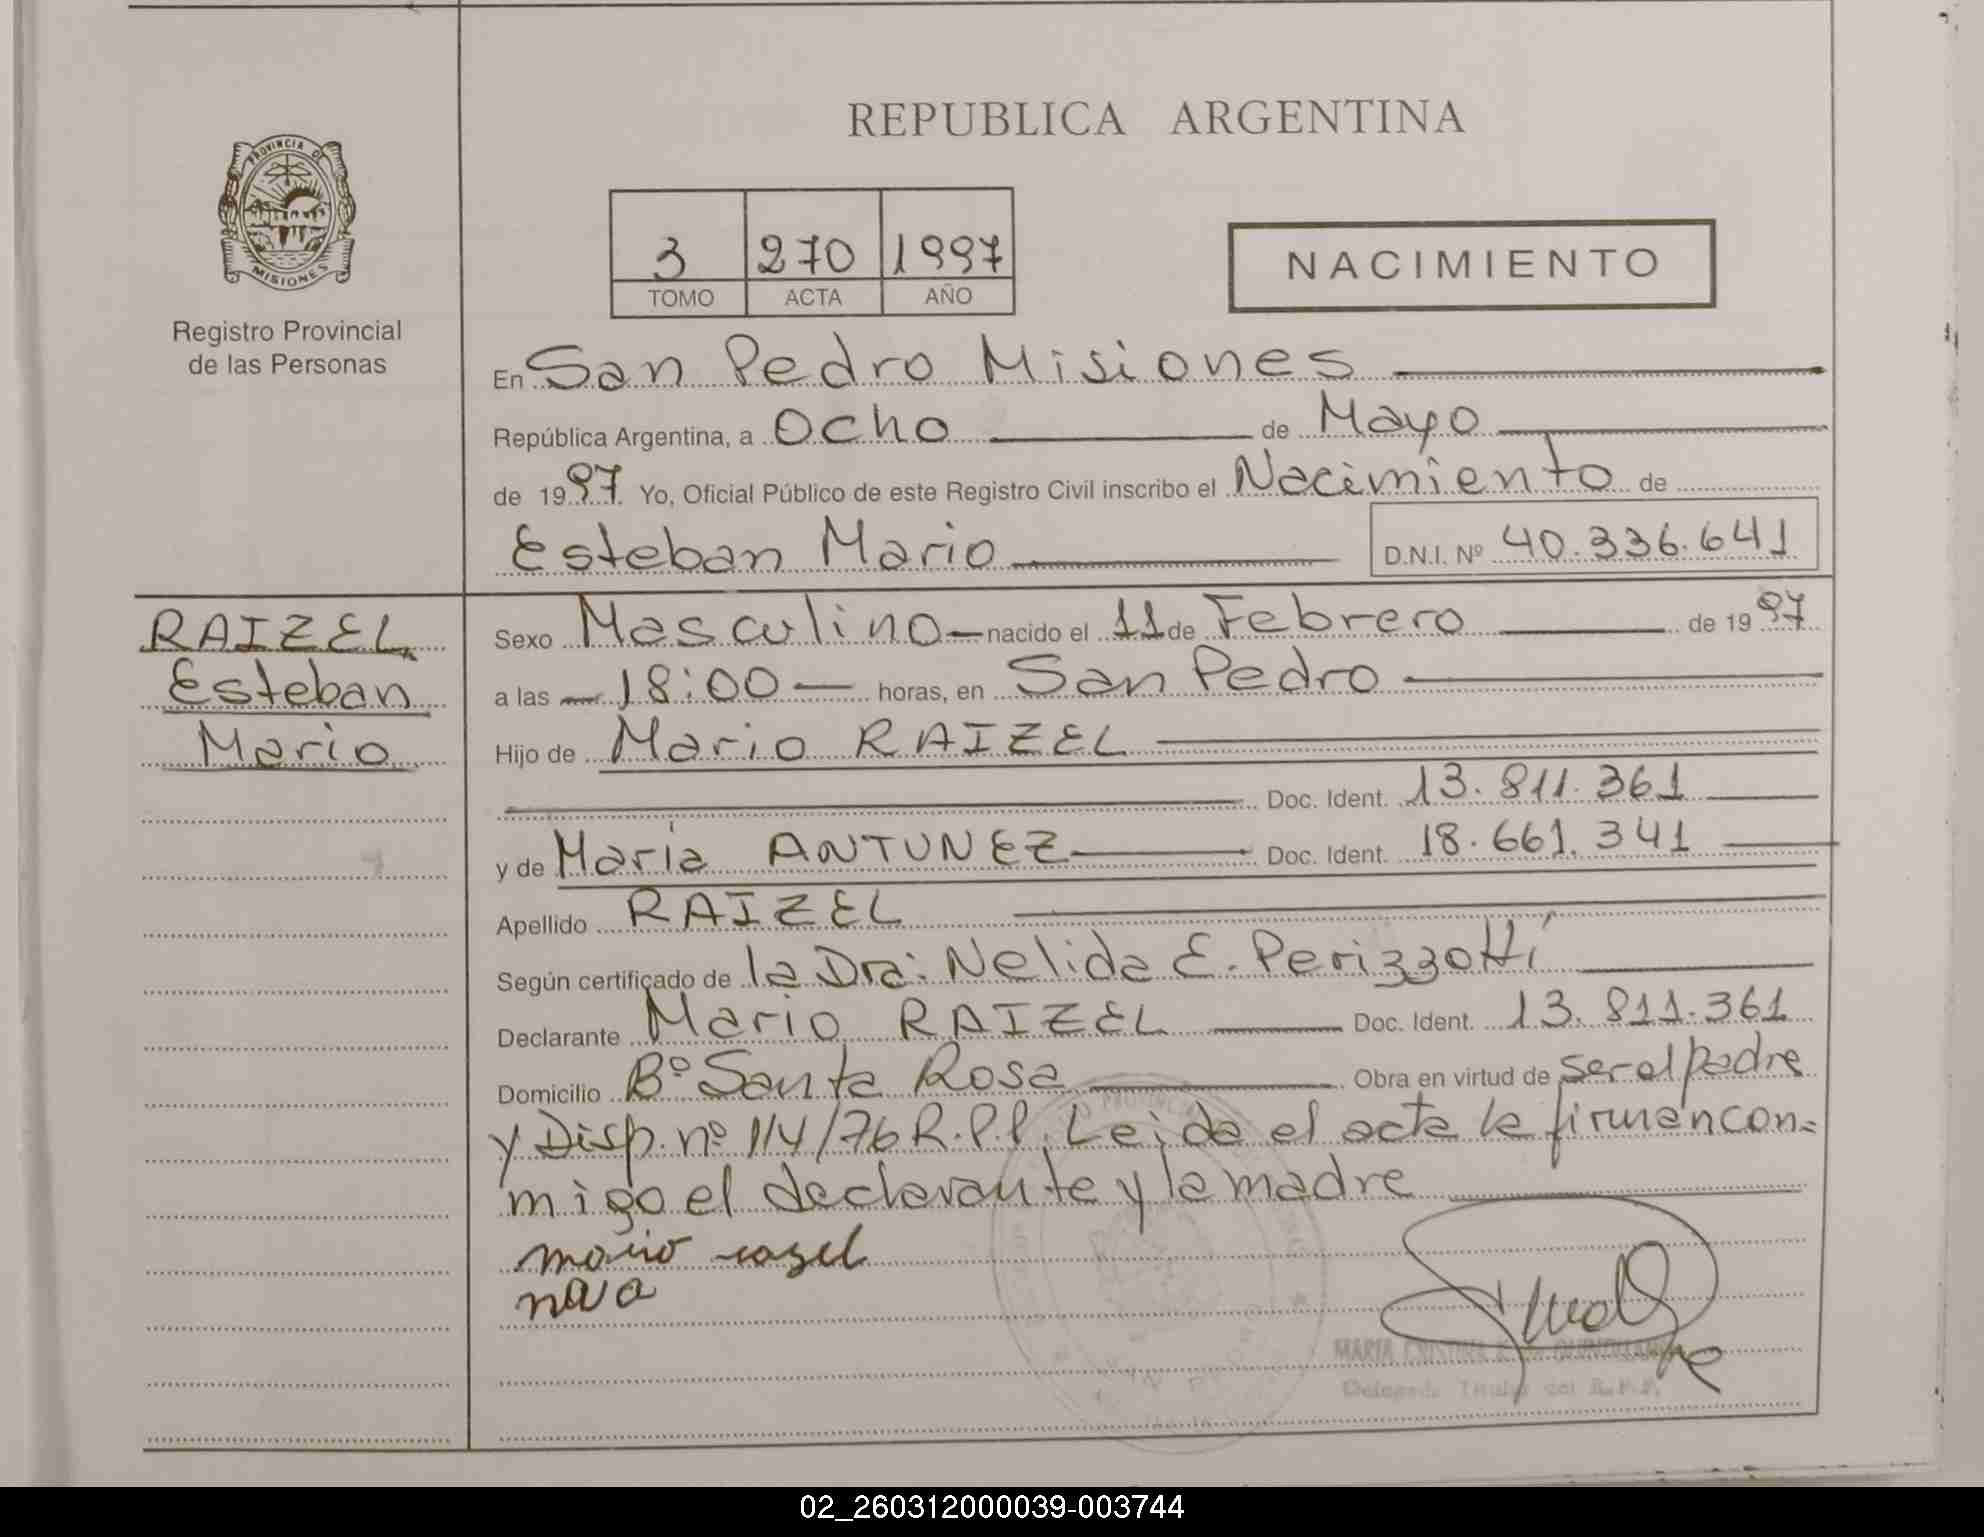 REPUBLICA ARGENTINA
PROVINCIA DE
MISIONES
Registro Provincial
de las Personas
3 270 1997
TOMO ACTA AÑO
NACIMIENTO
En San Pedro Misiones
República Argentina, a Ocho de Mayo
de 1997 Yo, Oficial Público de este Registro Civil inscribo el Nacimiento de
Esteban Mario D.N.I. Nº 40.336.641
RAIZEL
Esteban
Mario
Sexo Masculino nacido el 11 de Febrero de 1997
a las 18:00 horas, en San Pedro
Hijo de Mario RAIZEL
Doc. Ident. 13.811.361
y de María ANTUNEZ Doc. Ident. 18.661.341
Apellido RAIZEL
Según certificado de la Dra: Nelida E. Perizzottí
Declarante Mario RAIZEL Doc. Ident. 13.811.361
Domicilio Bº Santa Rosa Obra en virtud de ser el padre
y Disp. nº 114/76 R.P.P. Leida el acta la firman con=
migo el declarante y la madre
MARIA CRISTINA
Delegada Titular del R.P.P.
02_260312000039-003744